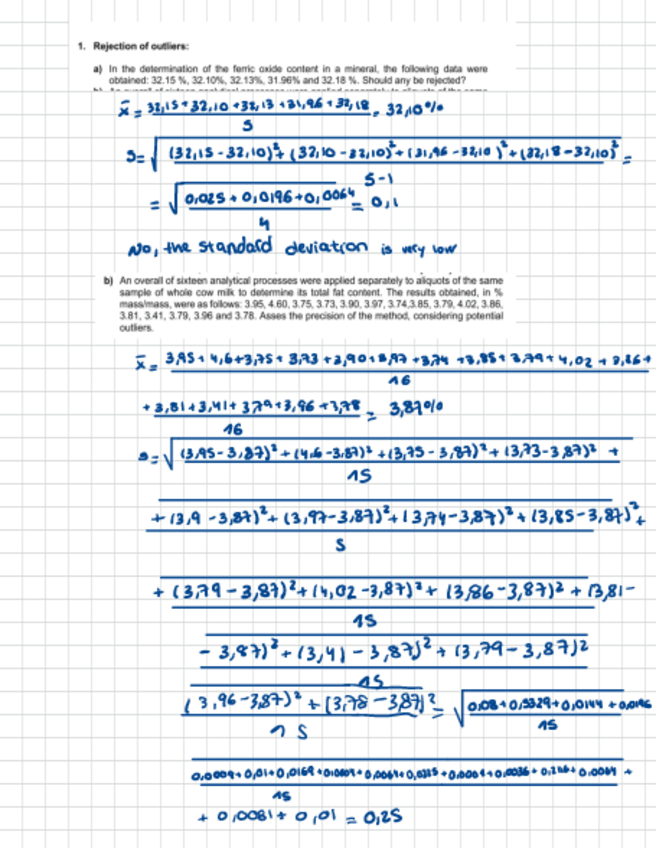 1. Rejection of outliers:
a) In the determination of the ferric oxide content in a mineral, the following data were
obtained: 32.15 %, 32.10%, 32.13%, 31.96% and 32.18 %. Should any be rejected?
x̄ = 32,15 + 32,10 + 32,13 + 31,96 + 32,18 / 5 = 32,10%
s = √ (32,15 - 32,10)² + (32,10 - 32,10)² + (31,96 - 32,10)² + (32,18 - 32,10)² / 5-1 =
= √ 0,025 + 0,0196 + 0,0064 / 4 = 0,1
No, the standard deviation is very low
b) An overall of sixteen analytical processes were applied separately to aliquots of the same
sample of whole cow milk to determine its total fat content. The results obtained, in %
mass/mass, were as follows: 3.95, 4.60, 3.75, 3.73, 3.90, 3.97, 3.74,3.85, 3.79, 4.02, 3.86,
3.81, 3.41, 3.79, 3.96 and 3.78. Asses the precision of the method, considering potential
outliers.
x̄ = 3,95 + 4,6 + 3,75 + 3,73 + 3,90 + 3,97 + 3,74 + 3,85 + 3,79 + 4,02 + 3,86 + / 16
+ 3,81 + 3,41 + 3,79 + 3,96 + 3,78 / 16 = 3,87%
s = √ (3,95 - 3,87)² + (4,6 - 3,87)² + (3,75 - 3,87)² + (3,73 - 3,87)² + / 15
+ (3,9 - 3,87)² + (3,97 - 3,87)² + (3,74 - 3,87)² + (3,85 - 3,87)² + / 5
+ (3,79 - 3,87)² + (4,02 - 3,87)² + (3,86 - 3,87)² + (3,81 - / 15
- 3,87)² + (3,41 - 3,87)² + (3,79 - 3,87)² / 15
(3,96 - 3,87)² + (3,78 - 3,87)² / 15 = √ 0,08 + 0,5329 + 0,0144 + 0,0196 / 15
0,0009 + 0,01 + 0,0169 + 0,0064 + + 0,0036 + 0,0064 + / 15
+ 0,0081 + 0,01 = 0,25